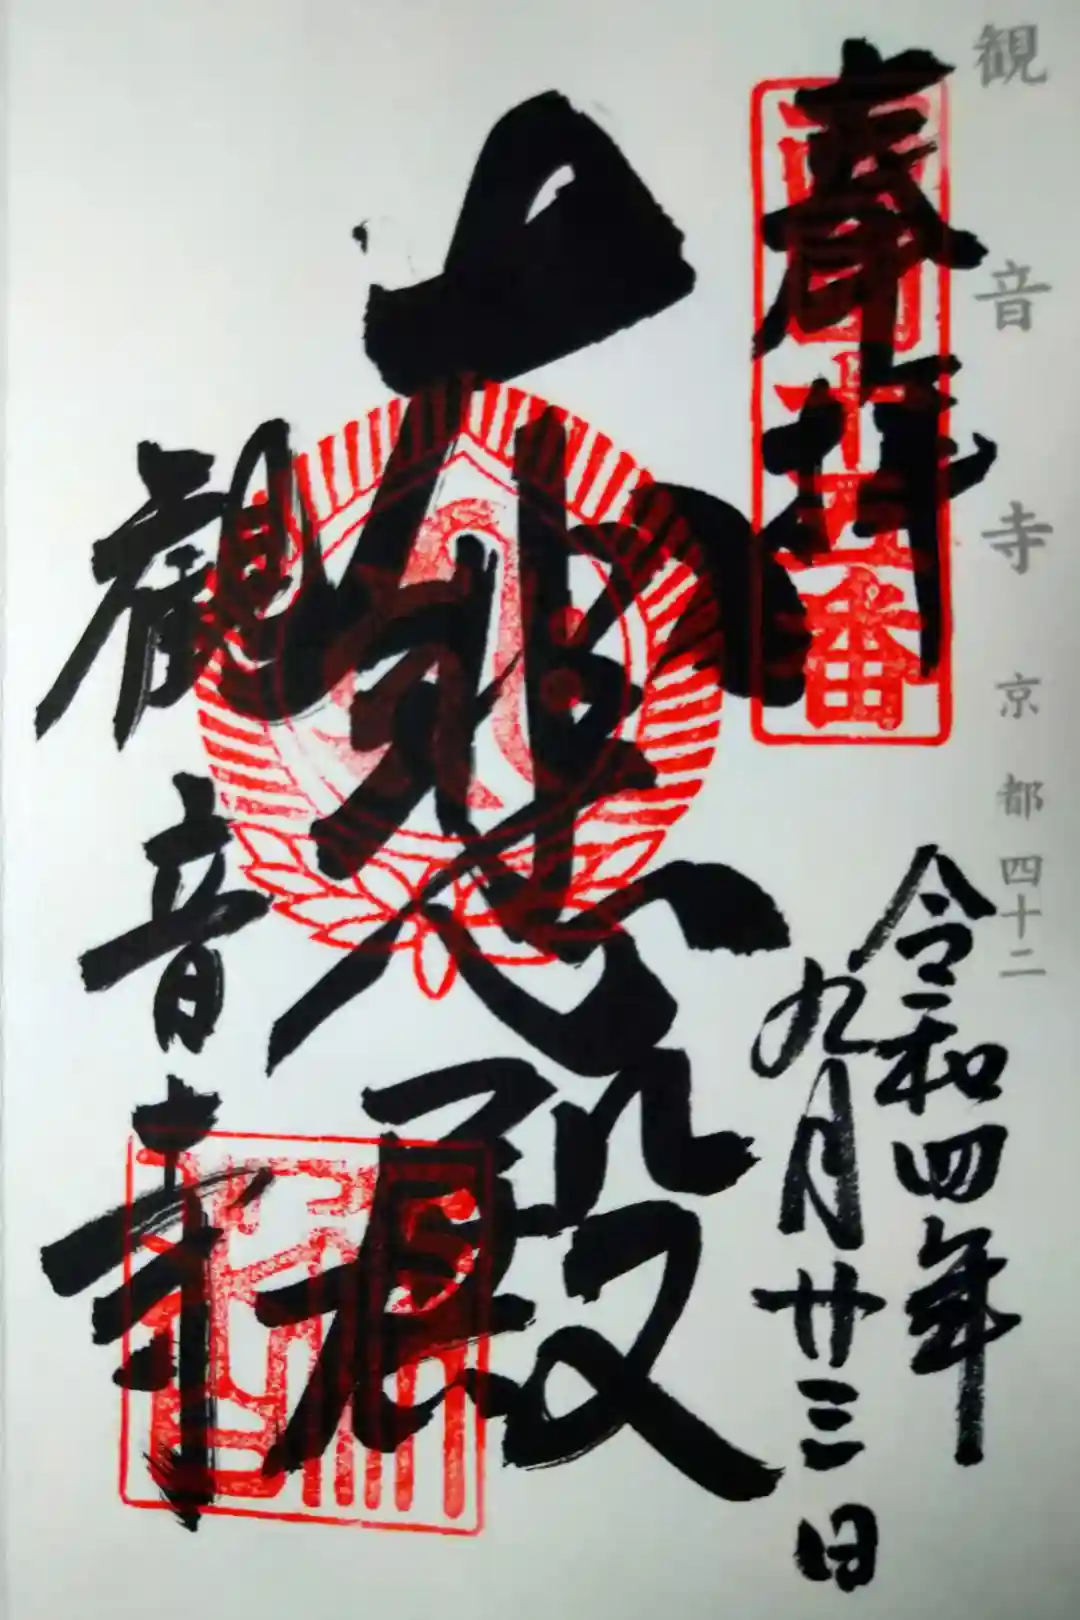 観音寺 京都四十二
奉拝
西国十五番
令和四年
九月廿三日
大悲殿
観音寺